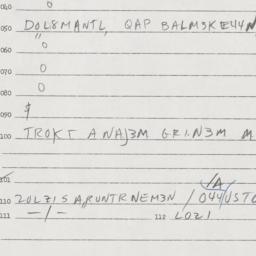 040 0
050 DOL8MANTL, QAP BALM3KE44N
060 0
070 0
080 0
090 $
100 TROKT ANAJ3M GRIN3M M
101
110 20LZISA,RUNTRNEM3N / 044/USTO
111 —/— 112 LOZI